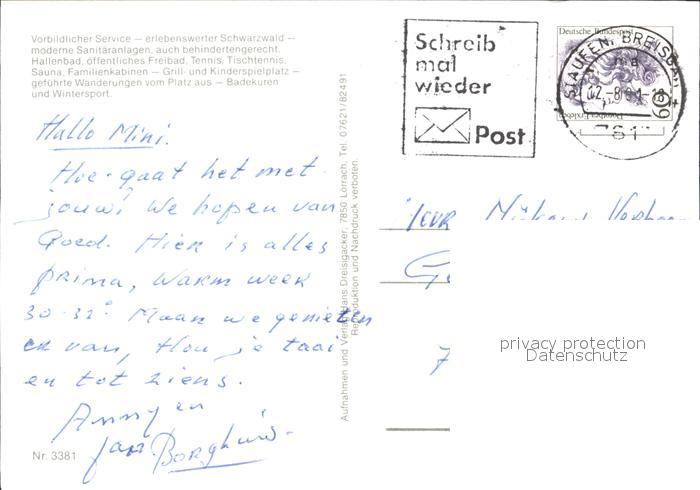 Vorbildlicher Service — erlebenswerter Schwarzwald —
moderne Sanitäranlagen, auch behindertengerecht.
Hallenbad, öffentliches Freibad, Tennis, Tischtennis,
Sauna, Familienkabinen — Grill- und Kinderspielplatz —
geführte Wanderungen vom Platz aus — Badekuren
und Wintersport.
Hallo Mini.
Hoe gaat het met
jouw? We hopen van
Goed. Hier is alles
prima, Warm weer
30-32° Maar we genieten
er van, Hou je taai
en tot ziens.
Anny en
Jan Borghuis.
Nr. 3381
Aufnahmen und Verlag Hans Dreisigacker, 7850 Lörrach, Tel. 07621/82491
Reproduktion und Nachdruck verboten.
Schreib
mal
wieder
Post
Deutsche Bundespost
STAUFEN, BREISGAU
privacy protection
Datenschutz